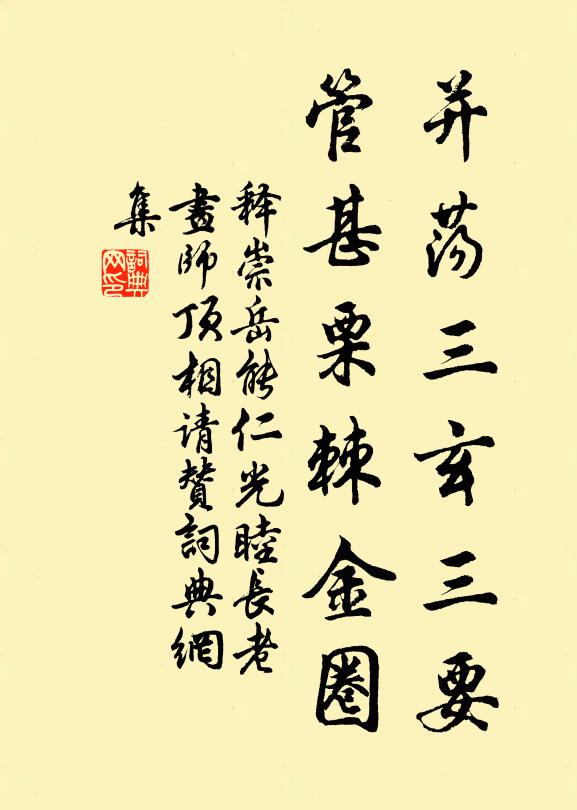 并荡三玄三要
管甚栗棘金圈
释崇岳能仁光睦長老
畫師頂相请贊詞典網
集
詞典网印